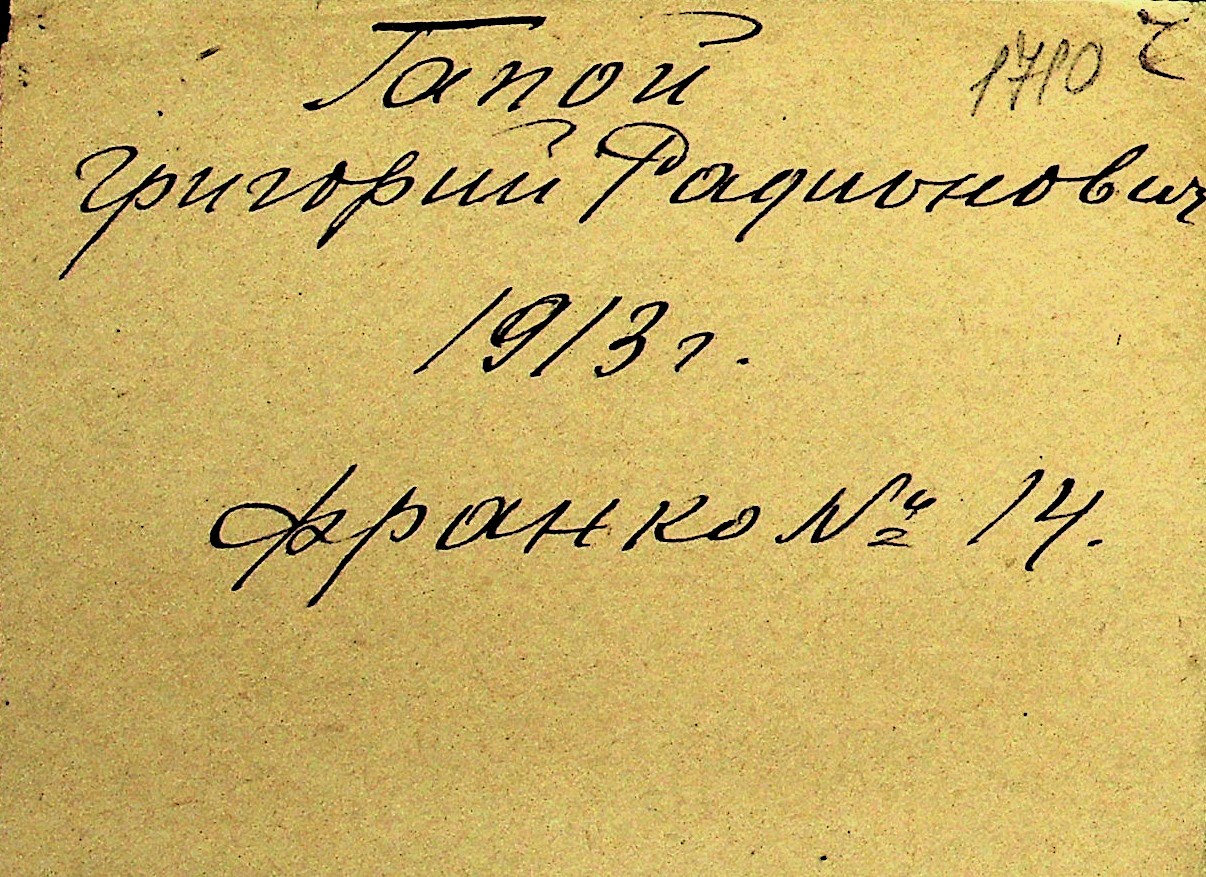 Гапой
1710
Григорий Радионович
1913 г.
Франко № 14.